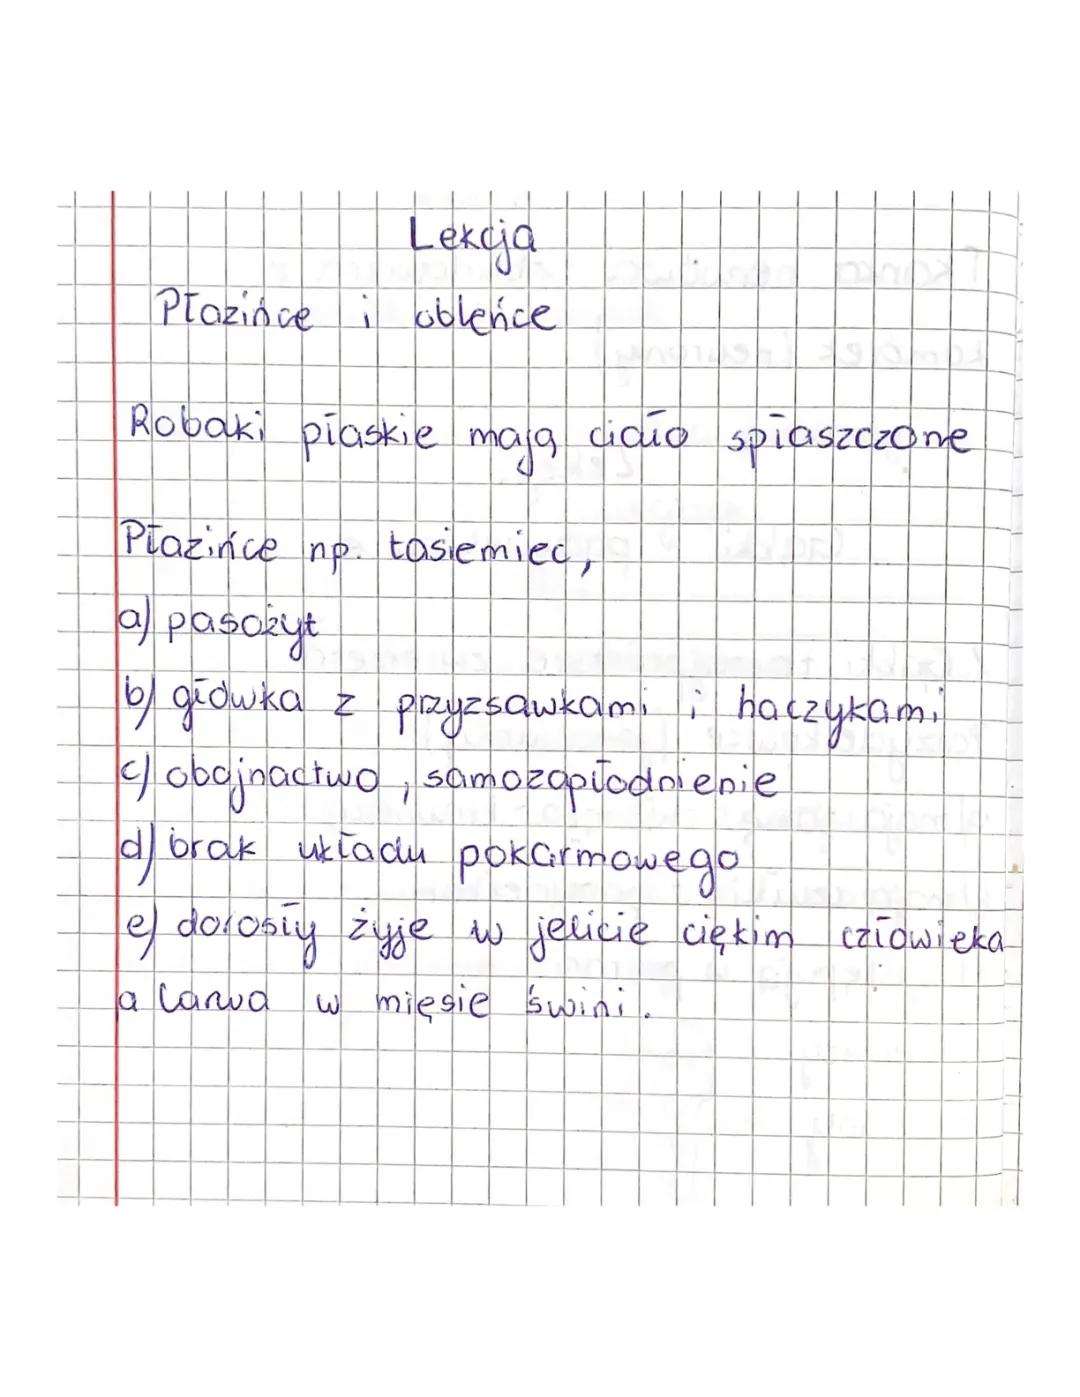 Lekcja
Płazińce i obleńce
Robaki płaskie mają ciało spłaszczone
Płazińce np. tasiemiec,
a) pasożyt
b) główka z przyzsawkami i haczykami
c) obojnactwo, samozapłodnienie
d) brak układu pokarmowego
e) dorosły żyje w jelicie ciękim człowieka
a larwa w mięsie świni.